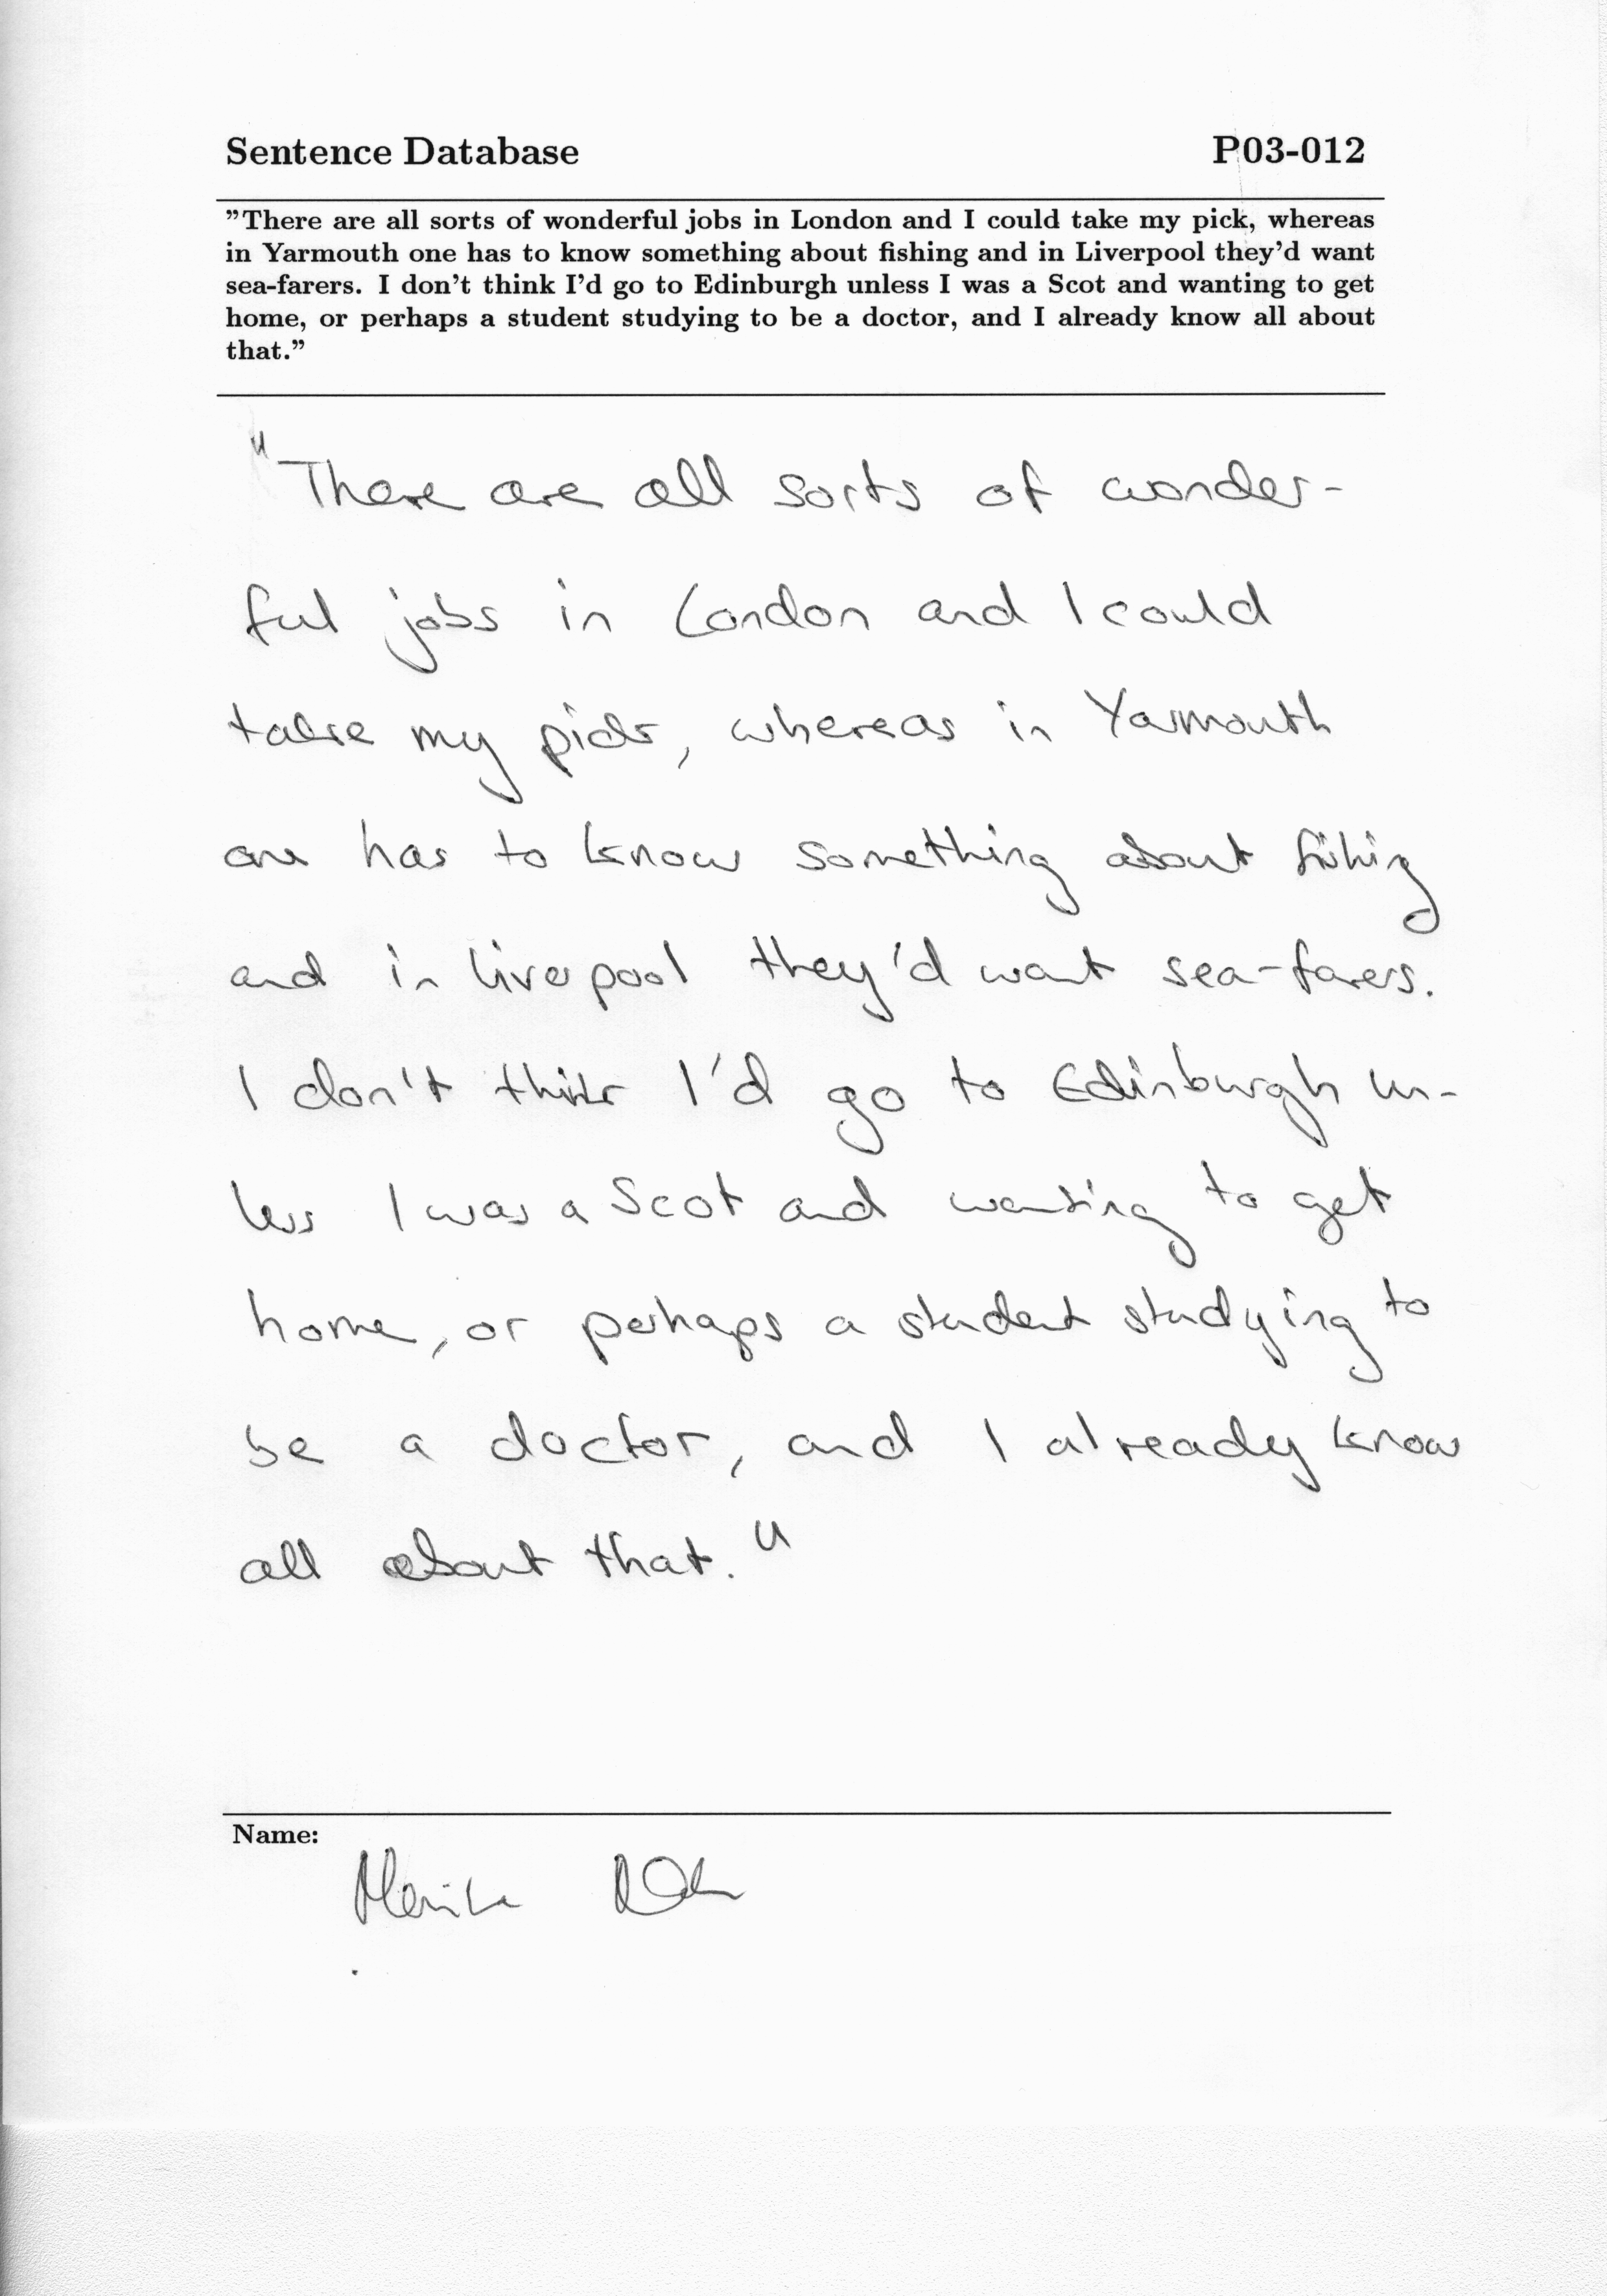 Sentence Database P03-012
"There are all sorts of wonderful jobs in London and I could take my pick, whereas
in Yarmouth one has to know something about fishing and in Liverpool they'd want
sea-farers. I don't think I'd go to Edinburgh unless I was a Scot and wanting to get
home, or perhaps a student studying to be a doctor, and I already know all about
that."
"There are all sorts of wonder-
ful jobs in London and I could
take my pick, whereas in Yarmouth
one has to know something about fishing
and in liverpool they'd want sea-farers.
I don't think I'd go to Edinburgh un-
less I was a Scot and wanting to get
home, or perhaps a student studying to
be a doctor, and I already know
all about that."
Name: